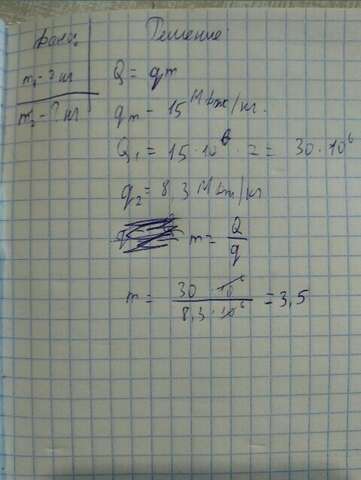 Дано Решение
m₁ - 2 кг
m₂ - ? кг
Q = qm
qm - 15 МДж/кг.
Q₁ = 15 · 10⁶ · 2 = 30 · 10⁶
q₂ = 8,3 МДж/кг
m = Q/q
m = 30 · 10⁶ / 8,3 · 10⁶ = 3,5